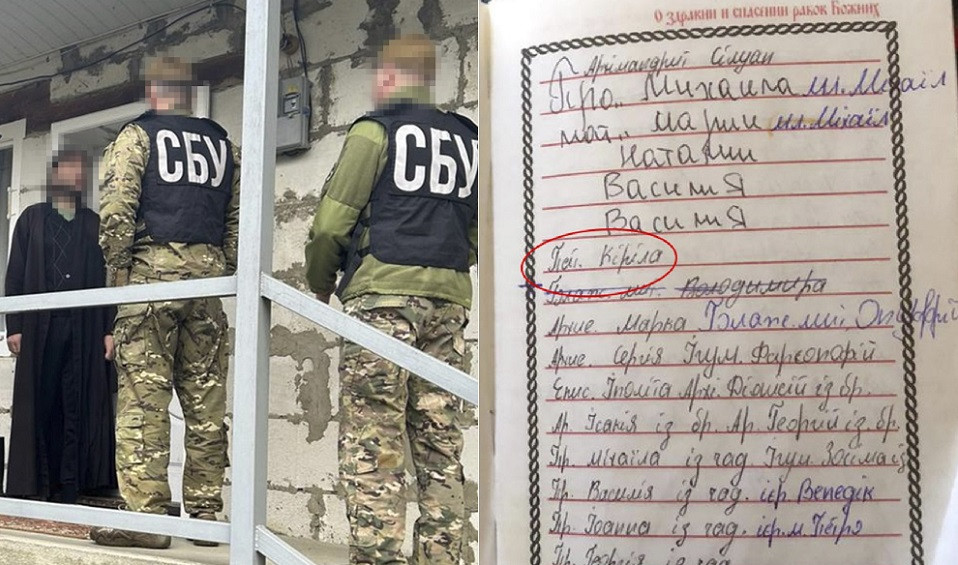 СБУ
СБУ
О здравии и спасении рабов Божиих
Архімандрит Сілуан
Про.. Михаила мл. Міхаїл
мат.. Марии мл. Міхаїл
Наталии
Василия
Василия
Кіріла
Володимира
Архие. Марка Блаже. мит. Онуфрій
Архие. Сергія Ігум.
Епис. Іполіта Архі. Діонісій із бр.
Ар. Ісанія із бр. Ар. Георгий із бр.
Пр. Міхаїла із чад. Ігум.
Пр. Василія із чад. ієр. Венедік
Пр. Іоанна із чад. ієр. м. Пётра
Пр. Георгія із чад.